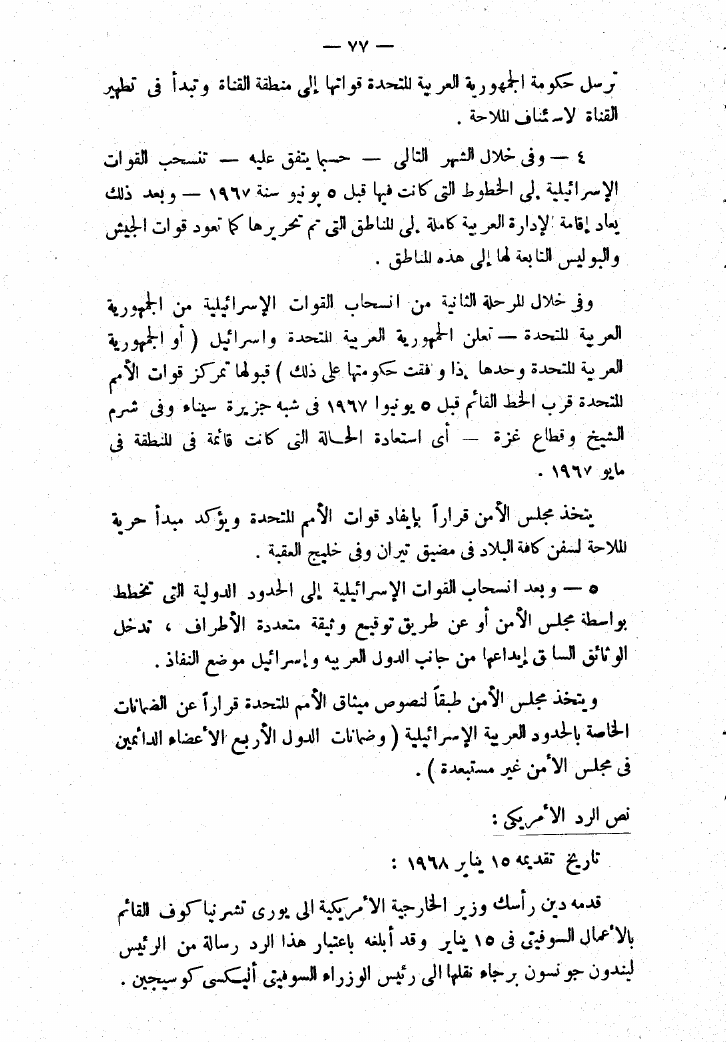 — ٧٧ —
ترسل حكومة الجمهورية العربية المتحدة قواتها إلى منطقة القناة وتبدأ فى تطهير
القناة لاستئناف الملاحة .
٤ — وفى خلال الشهر التالى — حسبما يتفق عليه — تنسحب القوات
الإسرائيلية إلى الخطوط التى كانت فيها قبل ٥ يونيو سنة ١٩٦٧ — وبعد ذلك
يعاد إقامة الإدارة العربية كاملة إلى المناطق التى تم تحريرها كما تعود قوات الجيش
والبوليس التابعة لها إلى هذه المناطق .
وفى خلال المرحلة الثانية من انسحاب القوات الإسرائيلية من الجمهورية
العربية المتحدة — تعلن الجمهورية العربية المتحدة واسرائيل ( أو الجمهورية
العربية المتحدة وحدها إذا وافقت حكومتها على ذلك ) قبولها تمركز قوات الأمم
المتحدة قرب الخط القائم قبل ٥ يونيوا ١٩٦٧ فى شبه جزيرة سيناء وفى شرم
الشيخ وقطاع غزة — أى استعادة الحالة التى كانت قائمة فى المنطقة فى
مايو ١٩٦٧ .
يتخذ مجلس الأمن قراراً بإيفاد قوات الأمم المتحدة ويؤكد مبدأ حرية
الملاحة لسفن كافة البلاد فى مضيق تيران وفى خليج العقبة .
٥ — وبعد انسحاب القوات الإسرائيلية إلى الحدود الدولية التى تخطط
بواسطة مجلس الأمن أو عن طريق توقيع وثيقة متعددة الأطراف ، تدخل
الوثائق السابق إيداعها من جانب الدول العربيه وإسرائيل موضع النفاذ .
ويتخذ مجلس الأمن طبقاً لنصوص ميثاق الأمم المتحدة قراراً عن الضمانات
الخاصة بالحدود العربية الإسرائيلية ( وضمانات الدول الأربع الأعضاء الدائمين
فى مجلس الأمن غير مستبعدة ) .
نص الرد الأمريكى :
تاريخ تقديمه ١٥ يناير ١٩٦٨ :
قدمه دين رأسك وزير الخارجية الأمريكية الى يورى تشرنياكوف القائم
بالأعمال السوفيتى فى ١٥ يناير وقد أبلغه باعتبار هذا الرد رسالة من الرئيس
ليندون جونسون برجاء نقلها الى رئيس الوزراء السوفيتى أليكسى كوسيجين .